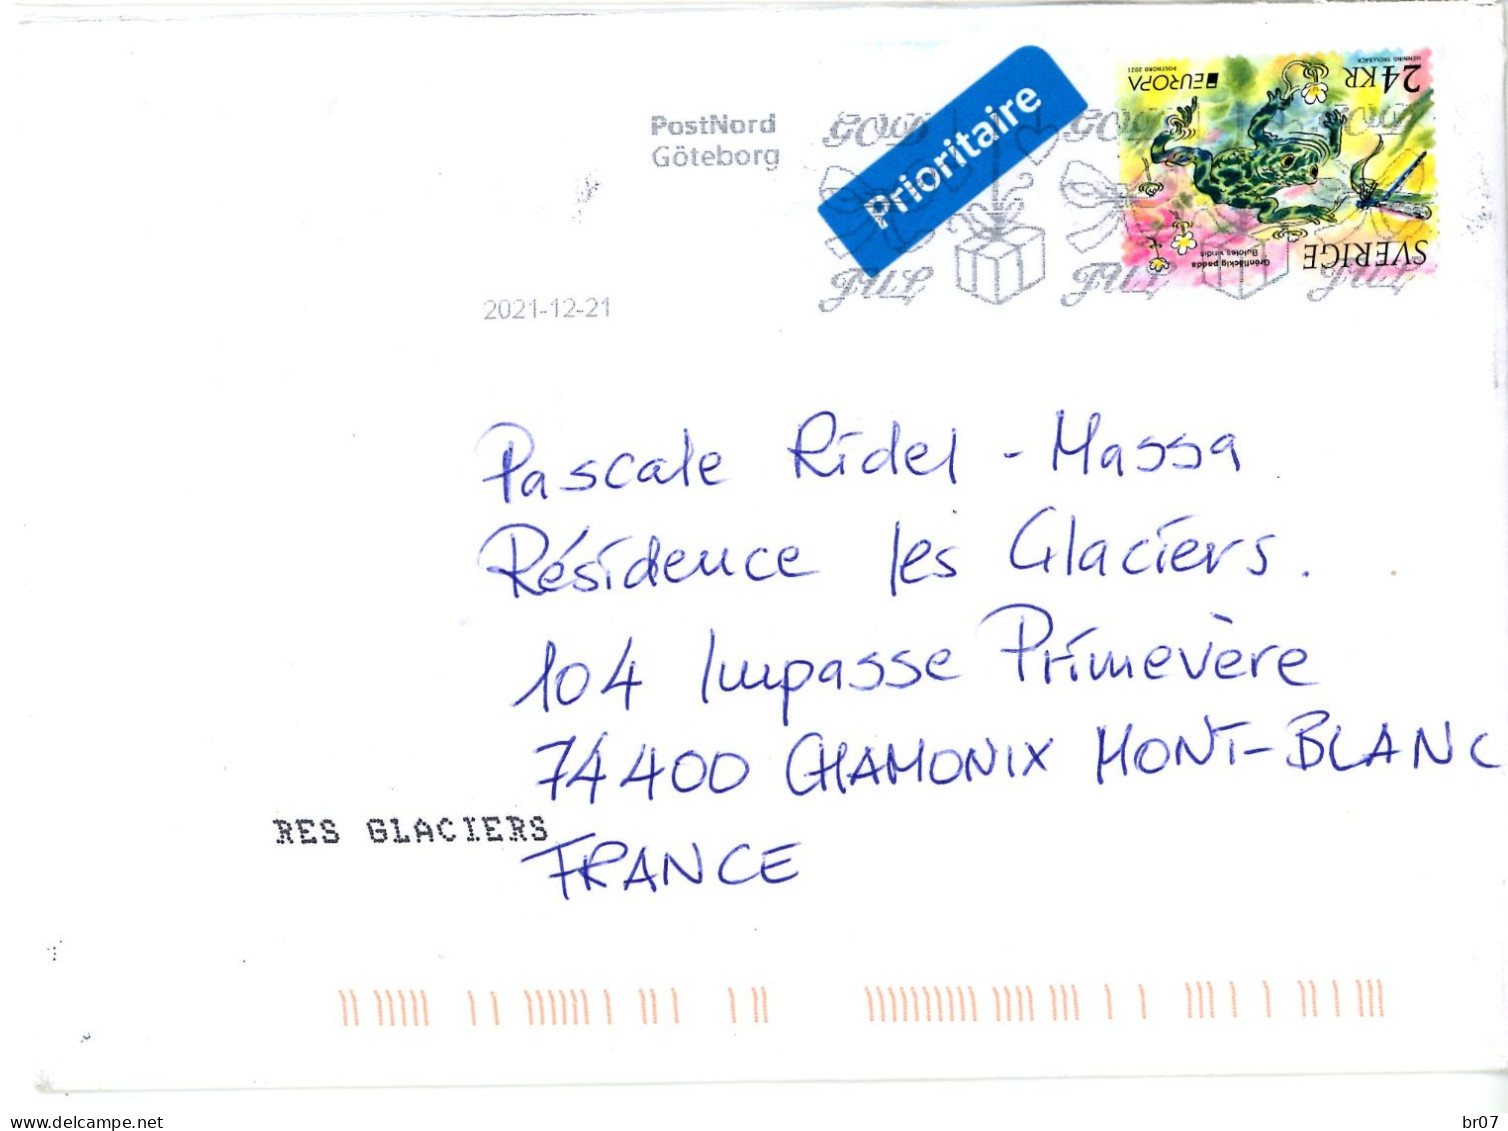 PostNord
Göteborg
2021-12-21
Prioritaire
GOD GOD GOD
JUL JUL JUL
24 KR
HENNING TROLLBÄCK
EUROPA
POSTNORD 2021
SVERIGE
Grönfläckig padda
Bufotes viridis
Pascale Ridel - Massa
Résidence les Glaciers.
104 Impasse Primevère
74400 CHAMONIX MONT-BLANC
RES GLACIERS
FRANCE
www.delcampe.net
br07